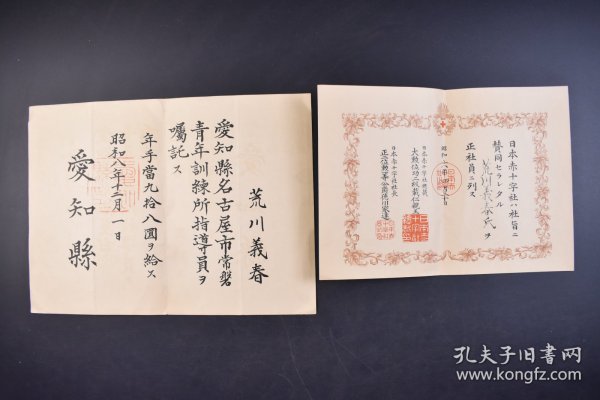 荒川義春
愛知縣名古屋市常磐
青年訓練所指導員ヲ
囑託ス
年手當九拾八圓ヲ給ス
昭和八年十二月一日
愛知縣
日本赤十字社ハ社旨ニ
賛同セラレタル
荒川義春氏ヲ
正社員ニ列ス
日本赤十字社總裁
大勲位功二級載仁親王
日本赤十字社社長
正二位勲一等公爵徳川家達
孔夫子旧书网
www.kongfz.com